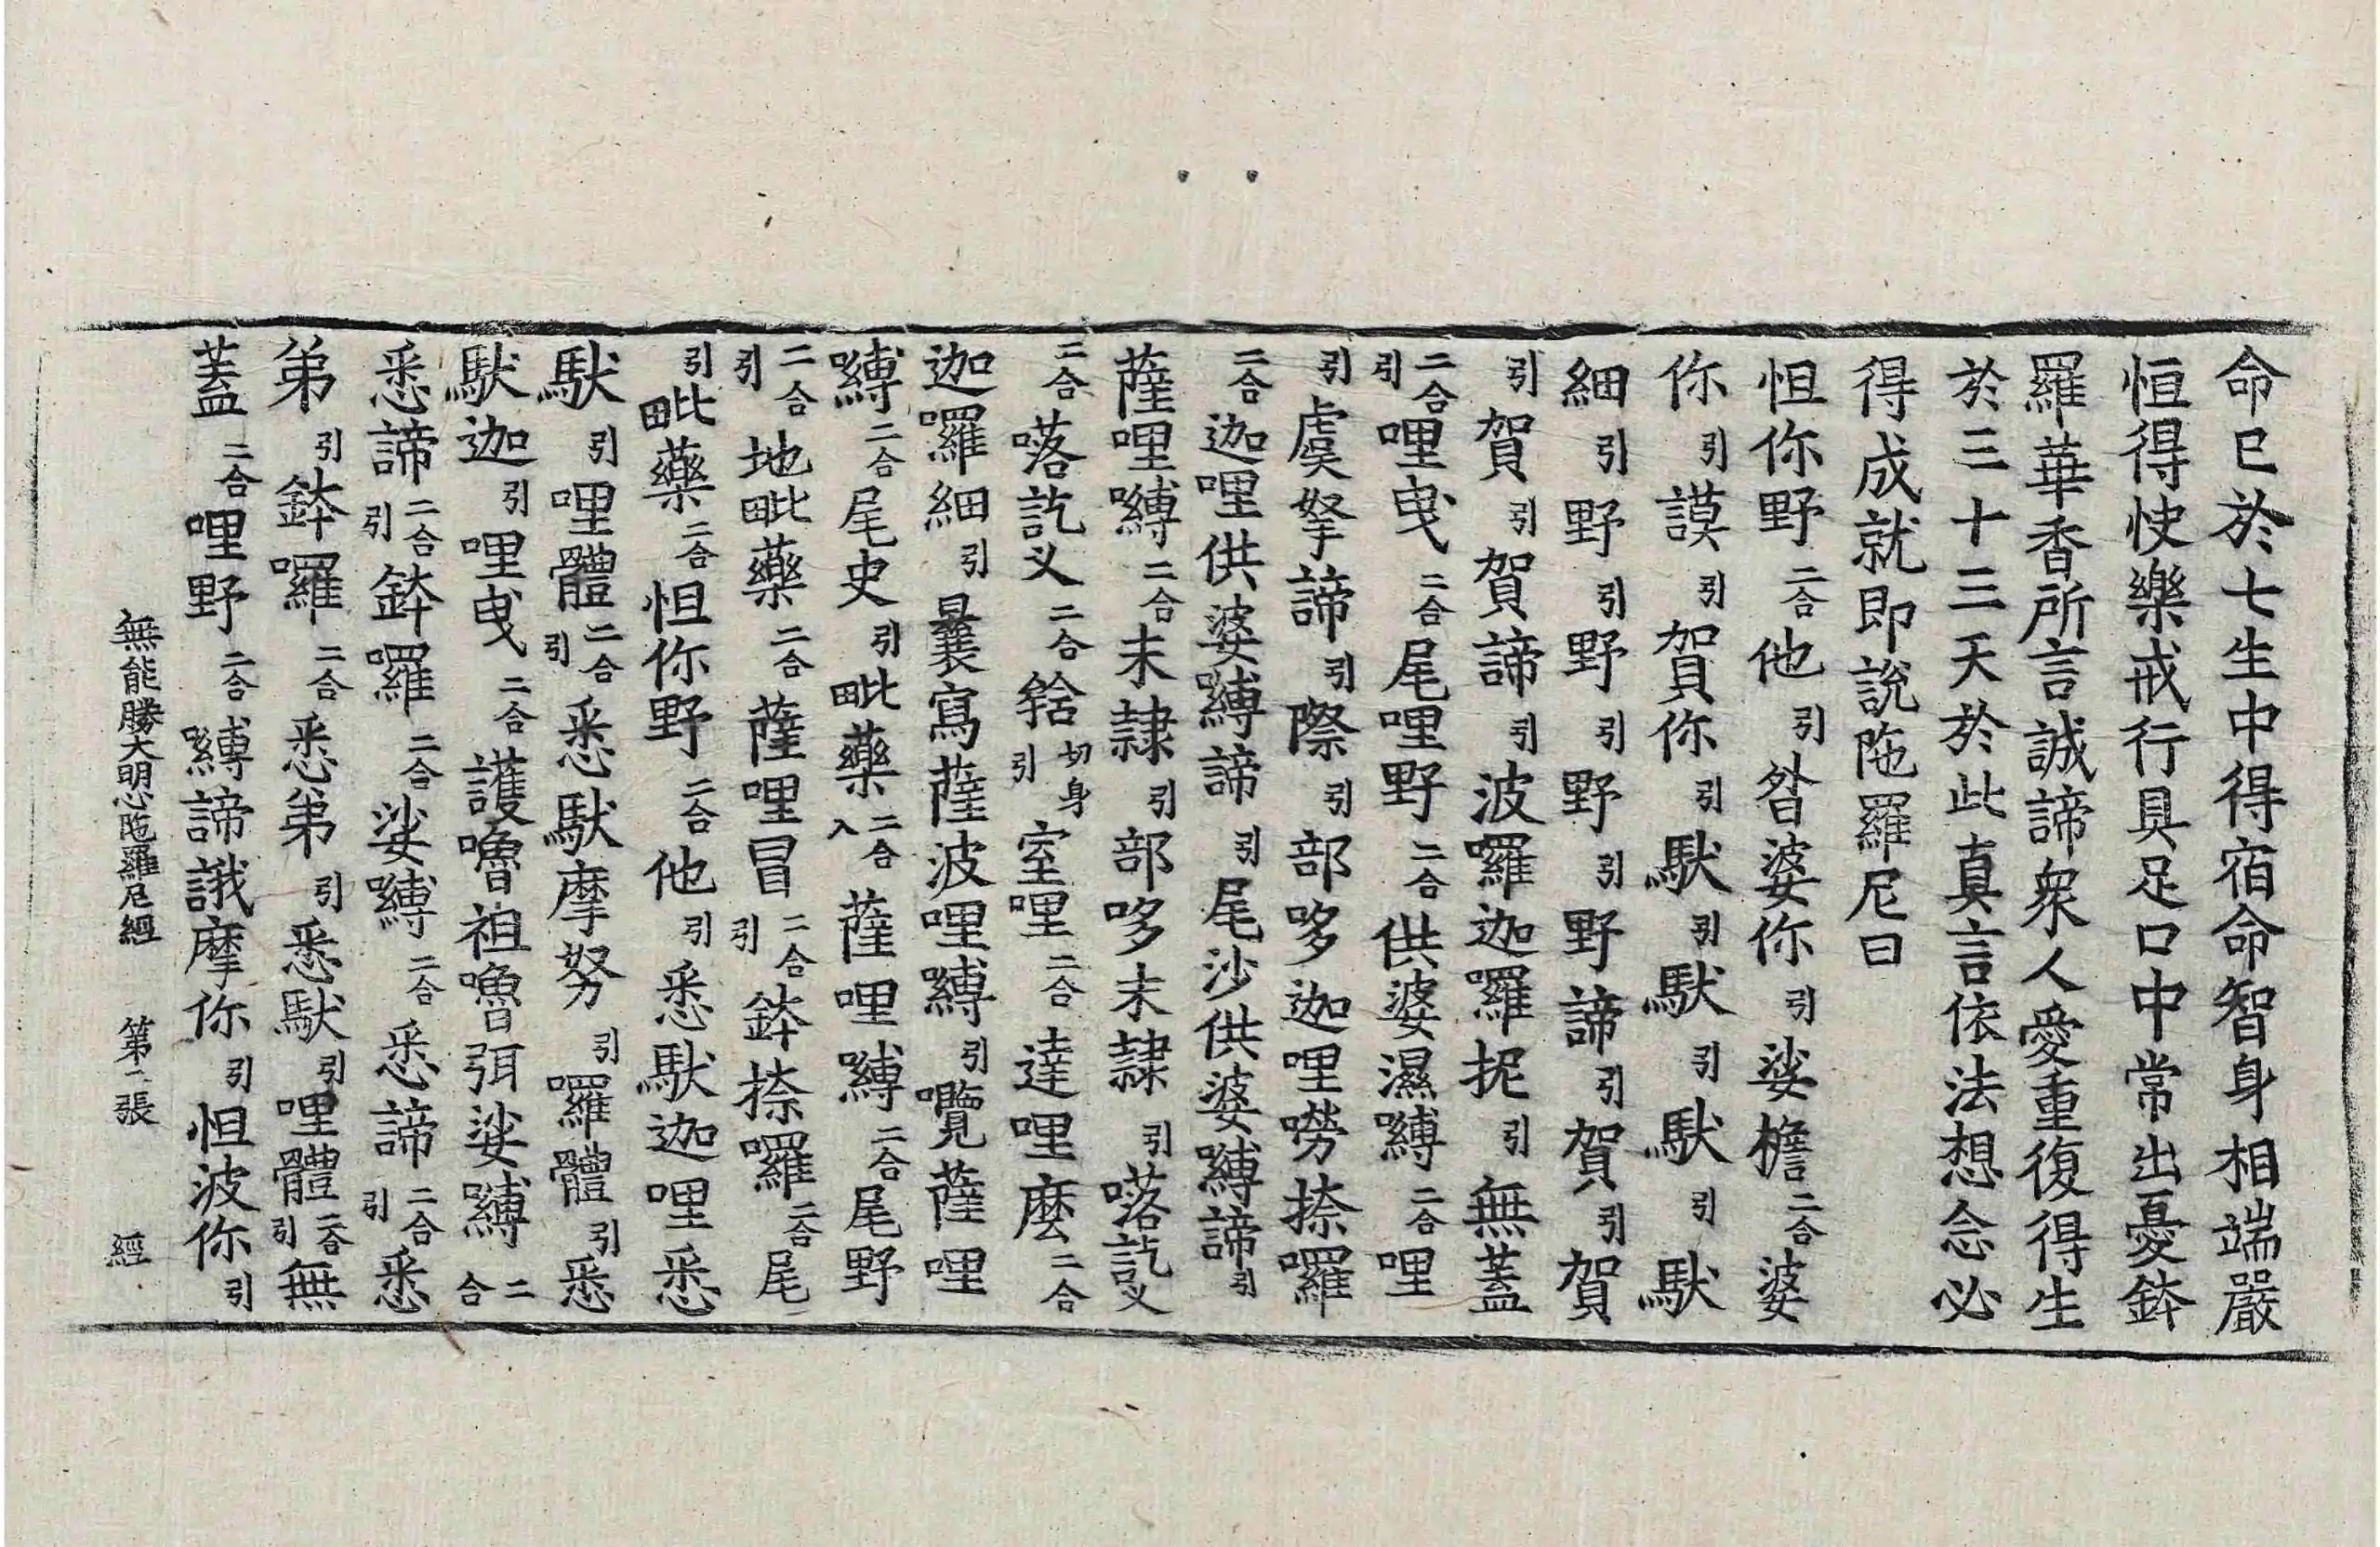 命已於七生中得宿命智身相端嚴
恒得快樂戒行具足口中常出憂鉢
羅華香所言誠諦衆人愛重復得生
於三十三天於此真言依法想念必
得成就即說陁羅尼曰
怛你野二合他引昝婆你引娑檐二合婆
你引謨引賀你引馱引馱引馱引馱
細引野引野引野引野諦引賀引賀
引賀引賀諦引波囉迦囉抳引無蓋
二合引哩曳二合尾哩野二合供婆濕嚩二合哩
引虞拏諦引際引部哆迦哩嘮捺囉
二合迦哩供婆嚩諦引尾沙供婆嚩諦引
薩哩嚩二合末隷引部哆末隷引㗶訖义
二合㗶訖义二合㘕切身引室哩二合達哩麽二合
迦囉細引曩寫薩波哩嚩引囕薩哩
嚩二合尾史引毗藥二合入薩哩嚩二合尾野
二合引地毗藥二合薩哩冒二合引鉢捺囉二合尾
引毗藥二合怛你野二合他引悉馱迦哩悉
馱引哩體二合引悉馱摩努引囉體引悉
馱迦引哩曳二合護嚕祖嚕弭娑嚩二合
悉諦二合引鉢囉二合娑嚩二合悉諦二合引悉
第引鉢囉二合悉第引悉馱引哩體二合引無
蓋二合哩野二合嚩諦誐摩你引怛波你引
無能勝大明心陁羅尼經　第二張　經